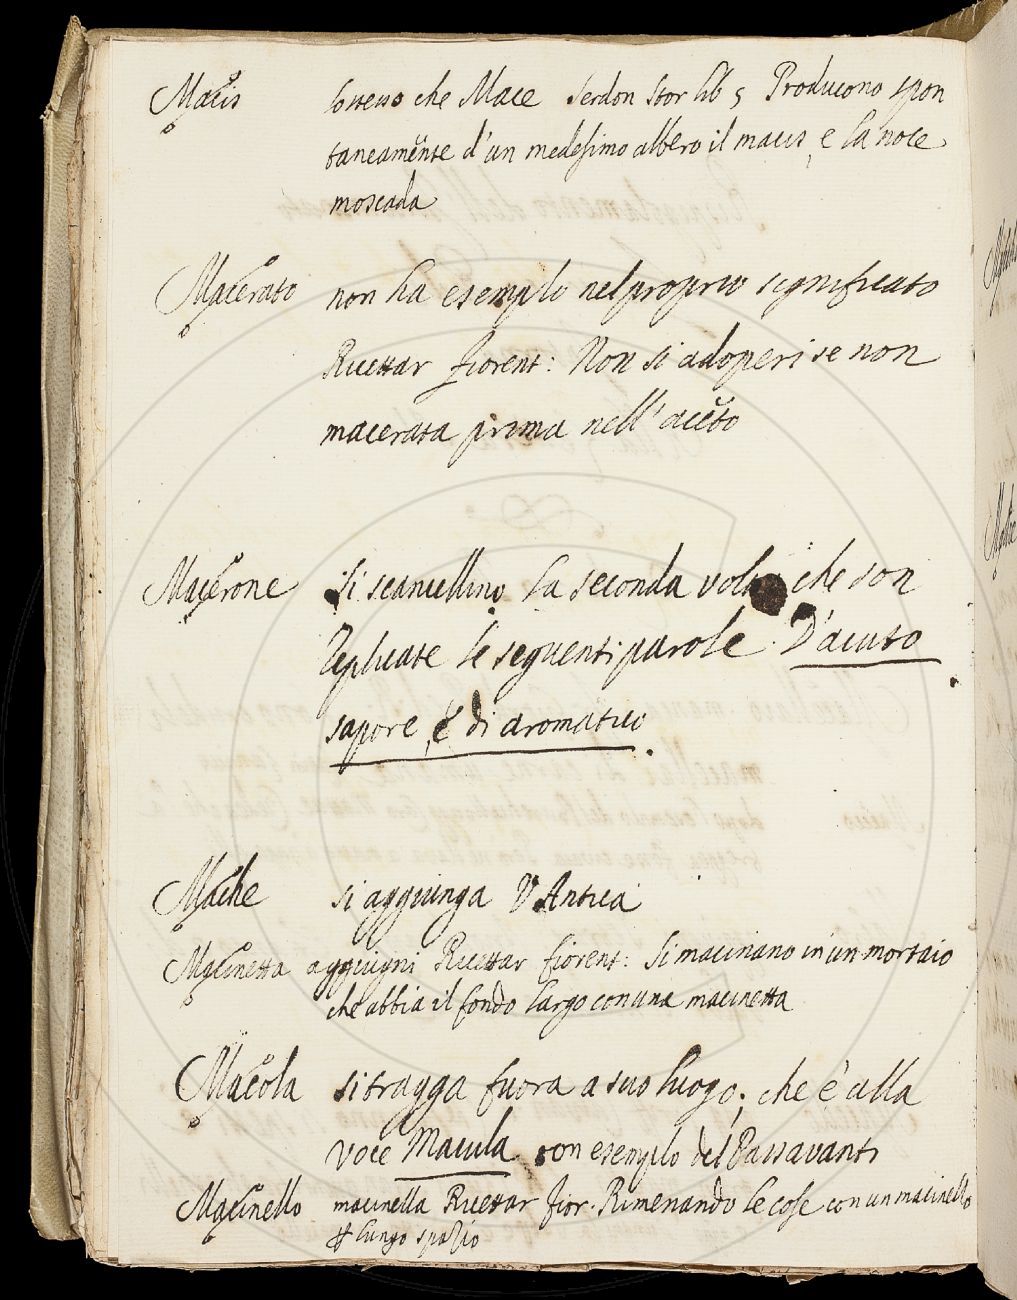 Macis lo stesso che Mace Serdon Stor lib 5 Producono spon
taneamẽnte d'un medesimo albero il macis, e la noce
moscada
Macerato non ha esemplo nel proprio significato
Ricettar fiorent: Non si adoperi se non
macerata prima nell'acẽto
Macerone Si scancellino la seconda volta che son
Replicate le seguenti parole D'acuto
sapore, e di aromatico
Mache si aggiunga V. Antica
Macinetta aggiugni Ricettar fiorent: Si macinano in un mortaio
che abbia il fondo largo con una macinetta
Macola si tragga fuora a suo luogo; che è alla
voce Macula con esemplo del Passavanti
Macinello macinella Ricettar fior. Rimenando le cose con un macinello
p lungo spazio